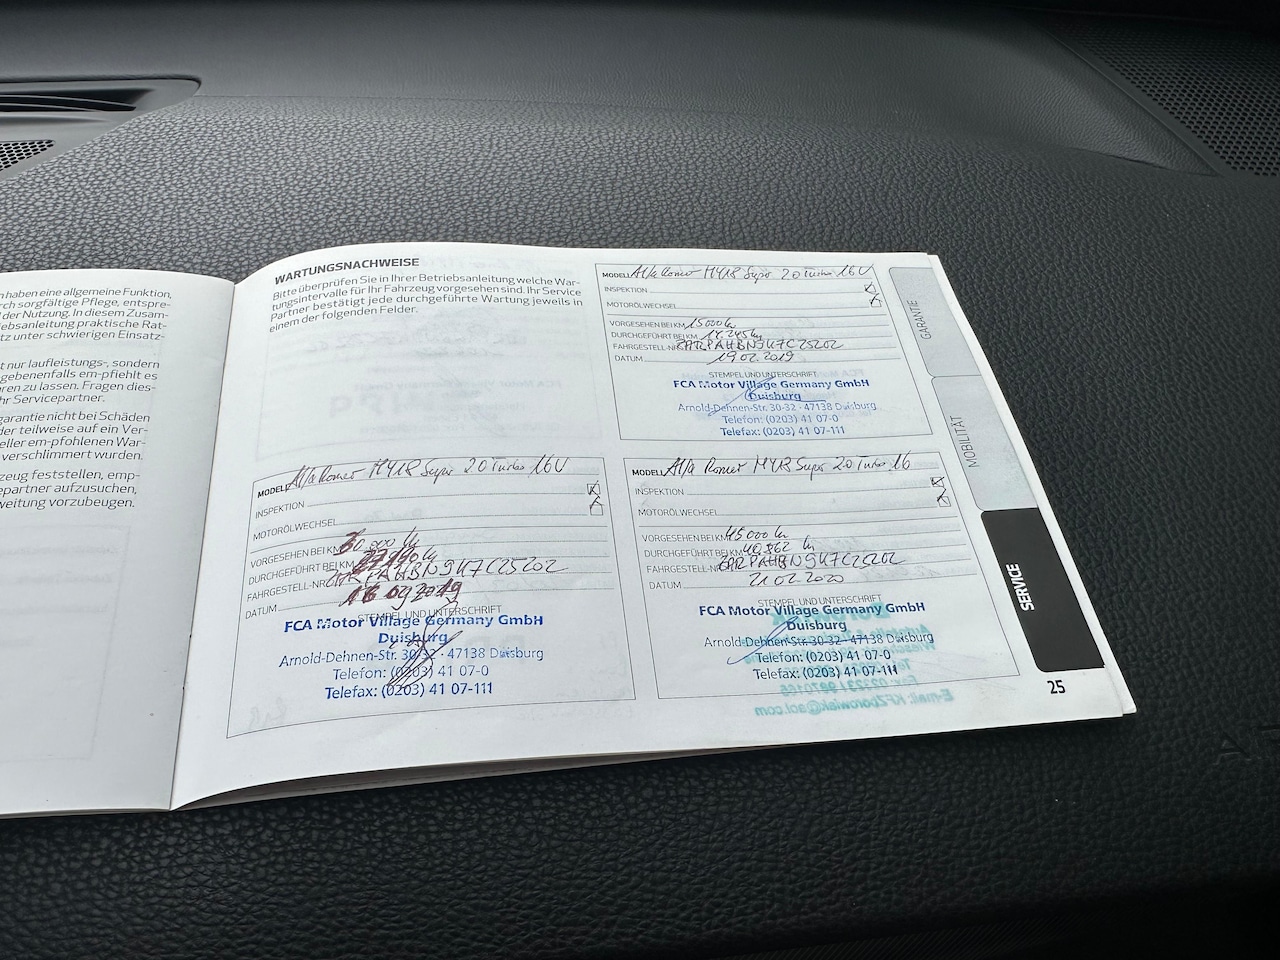 haben eine allgemeine Funktion,
rch sorgfältige Pflege, entspre-
der Nutzung. In diesem Zusam-
iebsanleitung praktische Rat-
tz unter schwierigen Einsatz-
t nur laufleistungs-, sondern
gebenenfalls em-pfiehlt es
ren zu lassen. Fragen dies-
hr Servicepartner.
garantie nicht bei Schäden
der teilweise auf ein Ver-
eller em-pfohlenen War-
verschlimmert wurden.
zeug feststellen, emp-
epartner aufzusuchen,
weitung vorzubeugen.
WARTUNGSNACHWEISE
Bitte überprüfen Sie in Ihrer Betriebsanleitung welche War-
tungsintervalle für Ihr Fahrzeug vorgesehen sind. Ihr Service
Partner bestätigt jede durchgeführte Wartung jeweils in
einem der folgenden Felder.
MODELL Alfa Romeo MY18 Super 2.0 Turbo 16V
INSPEKTION
MOTORÖLWECHSEL
VORGESEHEN BEI KM 15000 km
DURCHGEFÜHRT BEI KM
FAHRGESTELL-NR. ZARPAHBN9J7C25202
DATUM 19.02.2019
STEMPEL UND UNTERSCHRIFT
FCA Motor Village Germany GmbH
Duisburg
Arnold-Dehnen-Str. 30-32 · 47138 Duisburg
Telefon: (0203) 41 07-0
Telefax: (0203) 41 07-111
MODELL Alfa Romeo MY18 Super 2.0 Turbo 16V
INSPEKTION
MOTORÖLWECHSEL
VORGESEHEN BEI KM 30 000 km
DURCHGEFÜHRT BEI KM
FAHRGESTELL-NR.
DATUM 16 09 2019
STEMPEL UND UNTERSCHRIFT
FCA Motor Village Germany GmbH
Duisburg
Arnold-Dehnen-Str. 30-32 · 47138 Duisburg
Telefon: (0203) 41 07-0
Telefax: (0203) 41 07-111
MODELL Alfa Romeo MY18 Super 2.0 Turbo 16
INSPEKTION
MOTORÖLWECHSEL
VORGESEHEN BEI KM 45 000 km
DURCHGEFÜHRT BEI KM
FAHRGESTELL-NR.
DATUM 21.02.2020
STEMPEL UND UNTERSCHRIFT
FCA Motor Village Germany GmbH
Duisburg
Arnold-Dehnen-Str. 30-32 · 47138 Duisburg
Telefon: (0203) 41 07-0
Telefax: (0203) 41 07-111
GARANTIE
MOBILITÄT
SERVICE
25